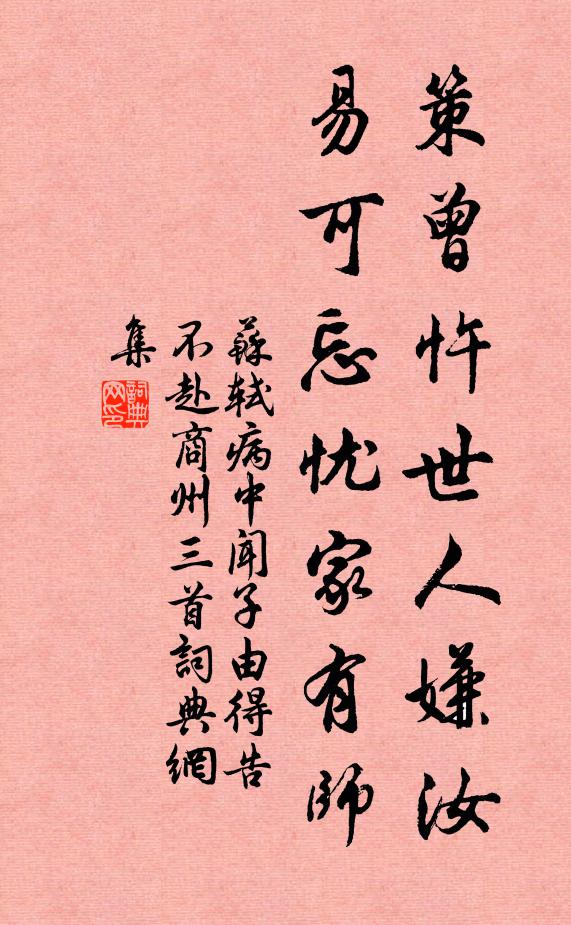 策曾忤世人嫌汝
易可忘忧家有師
蘇轼病中闻子由得告
不赴商州三首詞典網
集
詞典网印